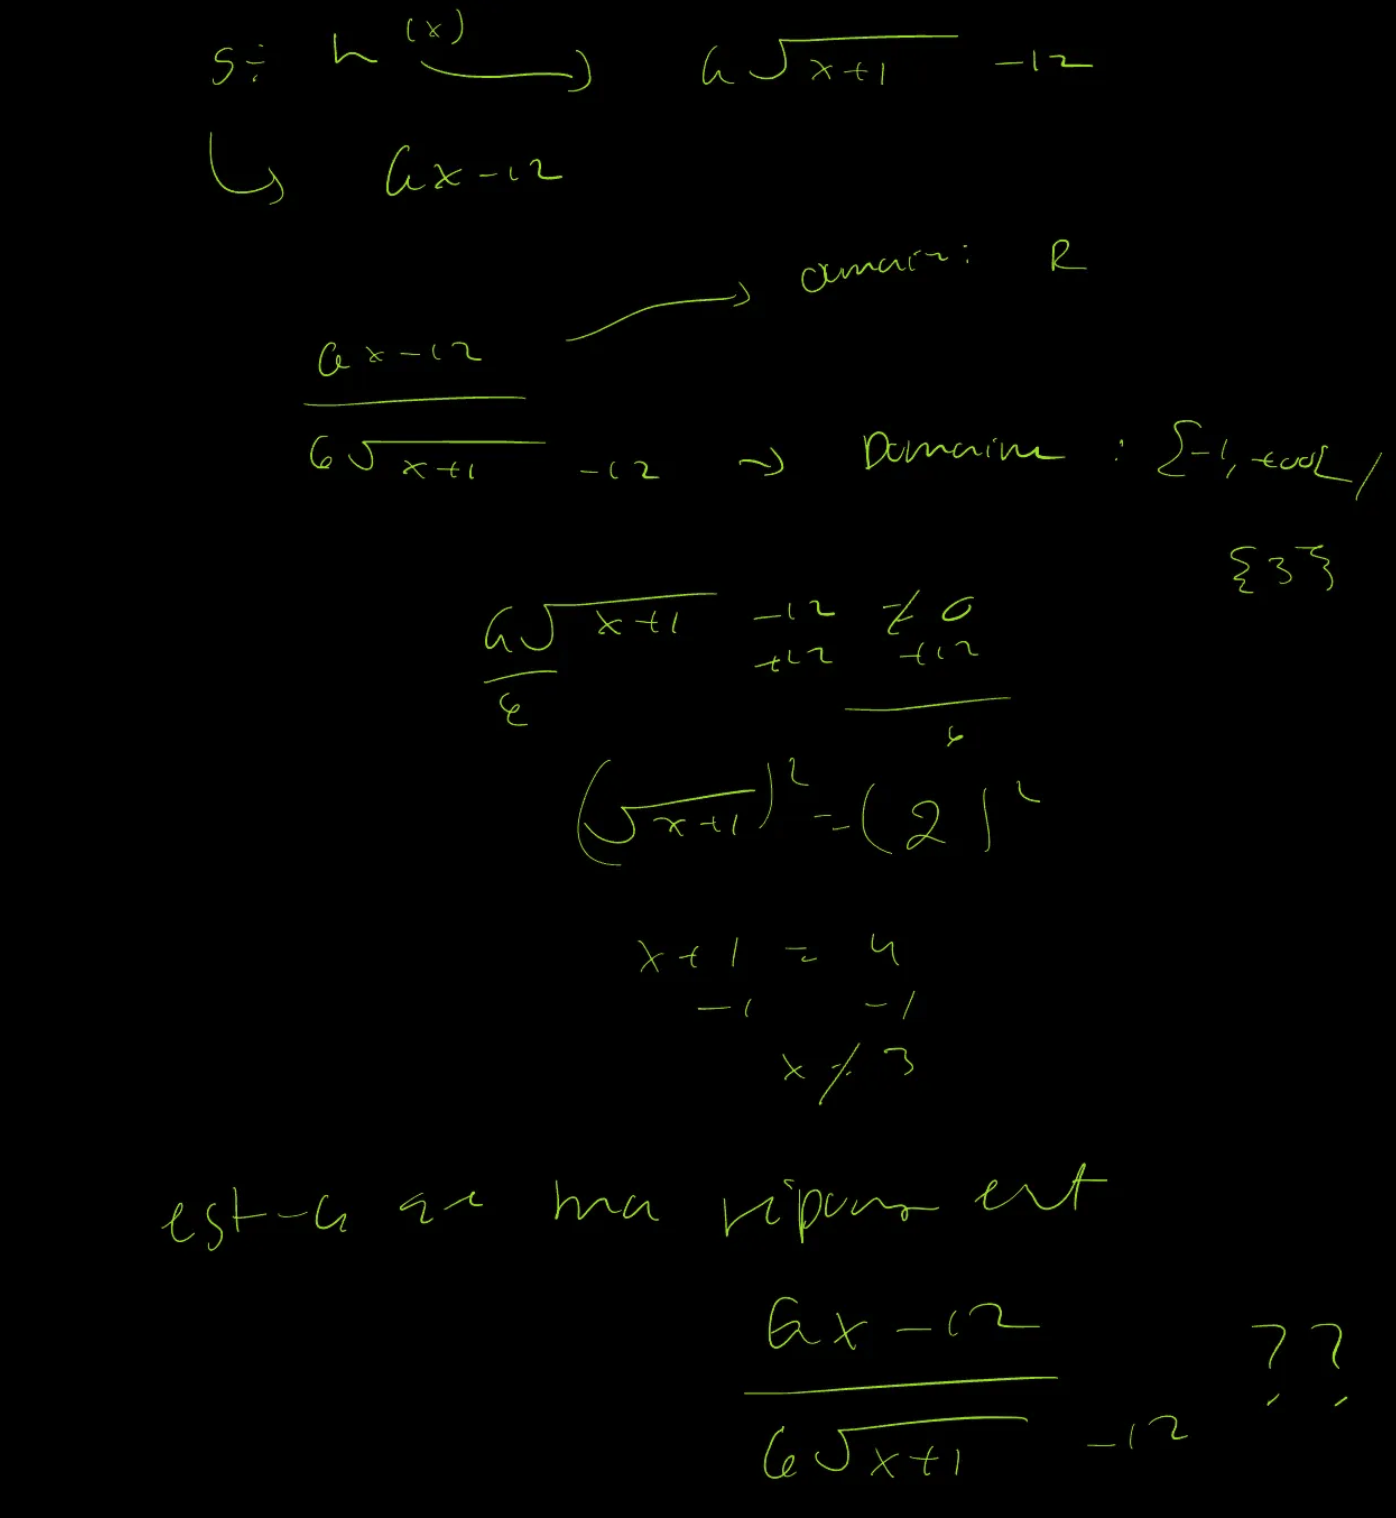 si h(x) → 6√(x+1) -12
↳ 6x-12
domain: R
6x-12
6√(x+1) -12 → Domaine : [-1, +∞[ /
{3}
6√(x+1) -12 ≠ 0
+12 +12
6 6
(√(x+1))² = (2)²
x+1 = 4
-1 -1
x ≠ 3
est-ce que ma réponse est
6x-12 ??
6√(x+1) -12